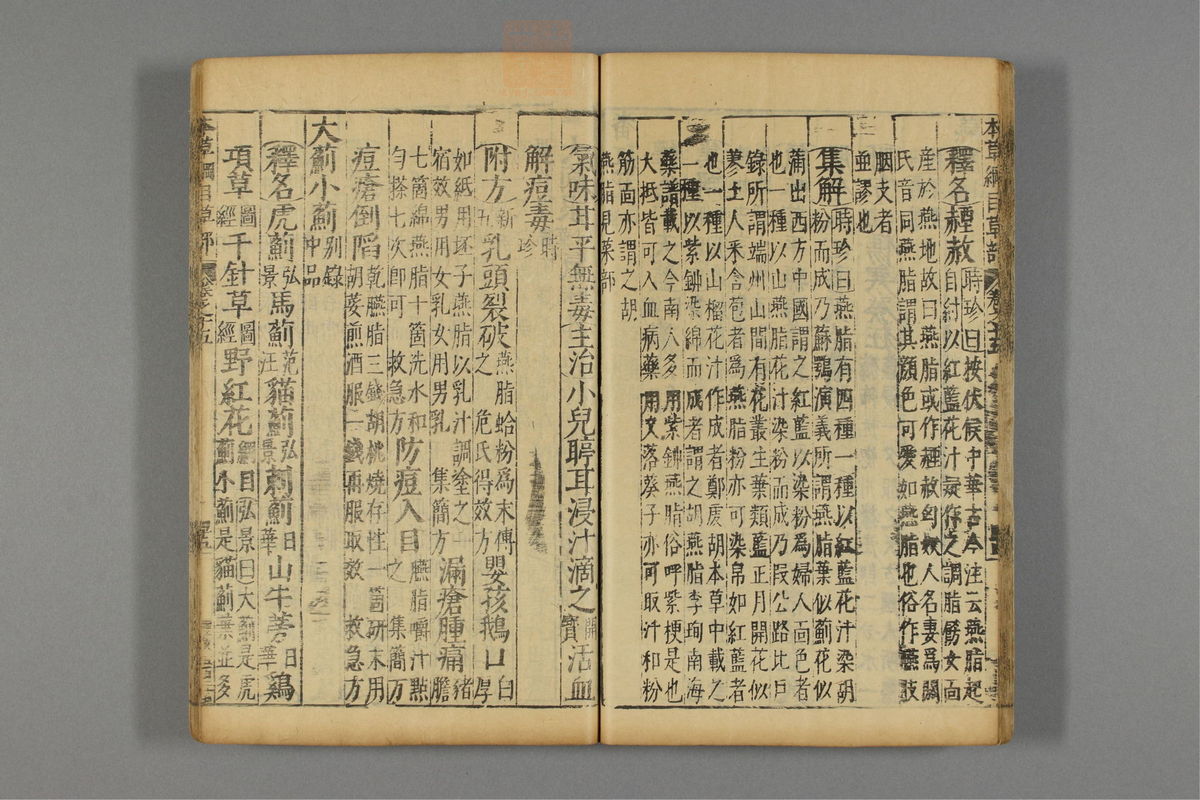 本草綱目草部 卷之十五
釋名䞓赦 時珍曰按伏候中華古今注云燕脂起
自紂以紅藍花汁凝作之調脂飾女面
產於燕地故曰燕脂或作䞓赦匈奴人名妻為閼
氏音同燕脂謂其顏色可愛如燕脂也俗作臙肢
胭支者
並謬也
集解 時珍曰燕脂有四種一種以紅藍花汁染胡
粉而成乃蘇鶚演義所謂燕脂葉似薊花似
蒲出西方中國謂之紅藍以染粉為婦人面色者
也一種以山燕脂花汁染粉而成乃段公路北戶
錄所謂端州山間有花叢生葉類藍正月開花似
蓼土人采含苞者為燕脂粉亦可染帛如紅藍者
也一種以山榴花汁作成者鄭虔胡本草中載之
一種以紫鉚染綿而成者謂之胡燕脂李珣南海
藥譜載之今南人多用紫鉚燕脂俗呼紫梗是也
大抵皆可入血病藥用又落葵子亦可取汁和粉
飾面亦謂之胡
燕脂見菜部
氣味甘平無毒主治小兒聤耳浸汁滴之 開寶 活血
解痘毒 時珍
附方 新五 乳頭裂破 燕脂蛤粉為末傅之 危氏得效方 嬰孩鵝口 白厚
如紙用坯子燕脂以乳汁調塗之一
宿效男用女乳女用男乳 集簡方 漏瘡腫痛 猪膽
七箇綿燕脂十箇洗水和
勻搽七次即可 救急方 防痘入目 臙脂嚼汁點之 集簡方
痘瘡倒陷 乾臙脂三錢胡桃燒存性一箇研末用
胡荽煎酒服一錢再服取效 救急方
大薊小薊 別錄中品
釋名虎薊 弘景 馬薊 范汪 貓薊 弘景 刺薊 日華 山牛蒡 日華 雞
項草 圖經 千針草 圖經 野紅花 綱目 弘景曰大薊是虎
薊小薊是貓薊葉並多
本草綱目草部 卷之十五